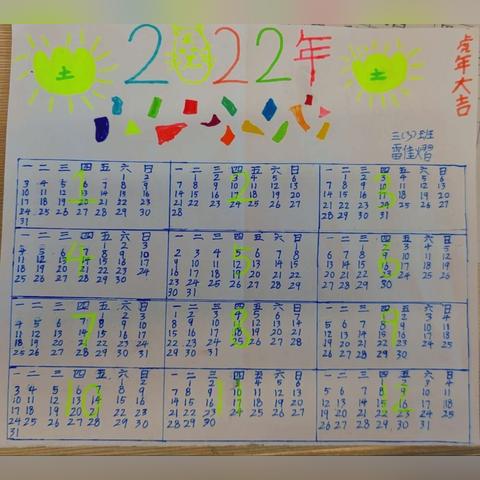 2022年
土
土
虎年大吉
三(5)班
雷佳熠
1
一 二 三 四 五 六 日
1 2
3 4 5 6 7 8 9
10 11 12 13 14 15 16
17 18 19 20 21 22 23
24 25 26 27 28 29 30
31
2
一 二 三 四 五 六 日
1 2 3 4 5 6
7 8 9 10 11 12 13
14 15 16 17 18 19 20
21 22 23 24 25 26 27
28
3
一 二 三 四 五 六 日
1 2 3 4 5 6
7 8 9 10 11 12 13
14 15 16 17 18 19 20
21 22 23 24 25 26 27
28 29 30 31
4
一 二 三 四 五 六 日
1 2 3
4 5 6 7 8 9 10
11 12 13 14 15 16 17
18 19 20 21 22 23 24
25 26 27 28 29 30
5
一 二 三 四 五 六 日
1
2 3 4 5 6 7 8
9 10 11 12 13 14 15
16 17 18 19 20 21 22
23 24 25 26 27 28 29
30 31
6
一 二 三 四 五 六 日
1 2 3 4 5
6 7 8 9 10 11 12
13 14 15 16 17 18 19
20 21 22 23 24 25 26
27 28 29 30
7
一 二 三 四 五 六 日
1 2 3
4 5 6 7 8 9 10
11 12 13 14 15 16 17
18 19 20 21 22 23 24
25 26 27 28 29 30 31
8
一 二 三 四 五 六 日
1 2 3 4 5 6 7
8 9 10 11 12 13 14
15 16 17 18 19 20 21
22 23 24 25 26 27 28
29 30 31
9
一 二 三 四 五 六 日
1 2 3 4
5 6 7 8 9 10 11
12 13 14 15 16 17 18
19 20 21 22 23 24 25
26 27 28 29 30
10
一 二 三 四 五 六 日
1 2
3 4 5 6 7 8 9
10 11 12 13 14 15 16
17 18 19 20 21 22 23
24 25 26 27 28 29 30
31
11
一 二 三 四 五 六 日
1 2 3 4 5 6
7 8 9 10 11 12 13
14 15 16 17 18 19 20
21 22 23 24 25 26 27
28 29 30
一 二 三 四 五 六 日
1 2 3 4
5 6 7 8 9 10 11
12 13 14 15 16 17 18
19 20 21 22 23 24 25
26 27 28 29 30 31